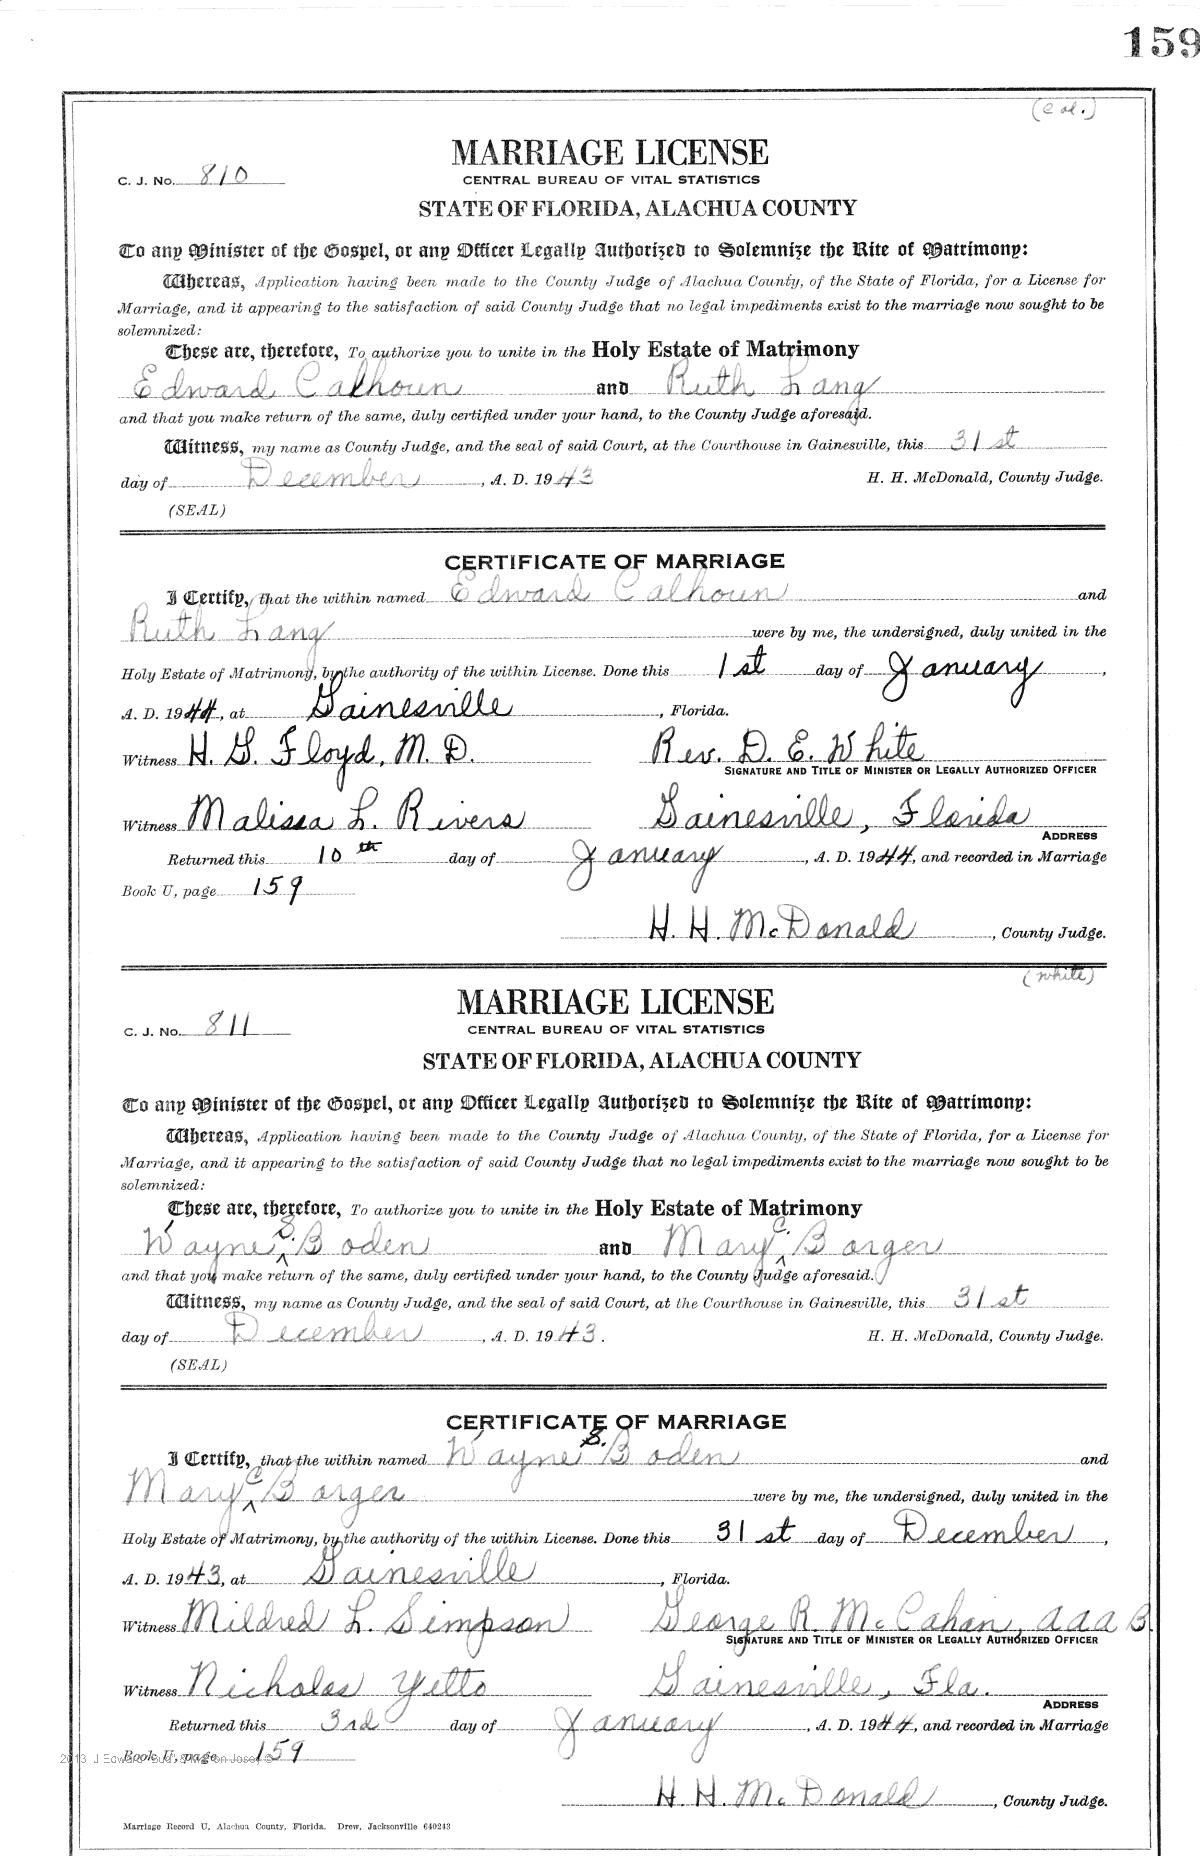 159
(Col.)
MARRIAGE LICENSE
C. J. No. 810
CENTRAL BUREAU OF VITAL STATISTICS
STATE OF FLORIDA, ALACHUA COUNTY
To any Minister of the Gospel, or any Officer Legally Authorized to Solemnize the Rite of Matrimony:
Whereas, Application having been made to the County Judge of Alachua County, of the State of Florida, for a License for
Marriage, and it appearing to the satisfaction of said County Judge that no legal impediments exist to the marriage now sought to be
solemnized:
These are, therefore, To authorize you to unite in the Holy Estate of Matrimony
Edward Calhoun and Ruth Lang
and that you make return of the same, duly certified under your hand, to the County Judge aforesaid.
Witness, my name as County Judge, and the seal of said Court, at the Courthouse in Gainesville, this 31st
day of December, A. D. 1943 H. H. McDonald, County Judge.
(SEAL)
CERTIFICATE OF MARRIAGE
I Certify, that the within named Edward Calhoun and
Ruth Lang were by me, the undersigned, duly united in the
Holy Estate of Matrimony, by the authority of the within License. Done this 1st day of January,
A. D. 1944, at Gainesville, Florida.
Witness H. G. Floyd, M. D. Rev. D. E. White
SIGNATURE AND TITLE OF MINISTER OR LEGALLY AUTHORIZED OFFICER
Witness Malissa L. Rivers Gainesville, Florida
ADDRESS
Returned this 10th day of January, A. D. 1944, and recorded in Marriage
Book U, page 159
H. H. McDonald, County Judge.
(white)
MARRIAGE LICENSE
C. J. No. 811
CENTRAL BUREAU OF VITAL STATISTICS
STATE OF FLORIDA, ALACHUA COUNTY
To any Minister of the Gospel, or any Officer Legally Authorized to Solemnize the Rite of Matrimony:
Whereas, Application having been made to the County Judge of Alachua County, of the State of Florida, for a License for
Marriage, and it appearing to the satisfaction of said County Judge that no legal impediments exist to the marriage now sought to be
solemnized:
These are, therefore, To authorize you to unite in the Holy Estate of Matrimony
Wayne S. Boden and Mary C. Barger
and that you make return of the same, duly certified under your hand, to the County Judge aforesaid.
Witness, my name as County Judge, and the seal of said Court, at the Courthouse in Gainesville, this 31st
day of December, A. D. 1943. H. H. McDonald, County Judge.
(SEAL)
CERTIFICATE OF MARRIAGE
I Certify, that the within named Wayne S. Boden and
Mary C Barger were by me, the undersigned, duly united in the
Holy Estate of Matrimony, by the authority of the within License. Done this 31st day of December,
A. D. 1943, at Gainesville, Florida.
Witness Mildred L. Simpson George R. McCahan, a a a B.
SIGNATURE AND TITLE OF MINISTER OR LEGALLY AUTHORIZED OFFICER
Witness Nicholas Yetto Gainesville, Fla.
ADDRESS
Returned this 3rd day of January, A. D. 1944, and recorded in Marriage
Book U, page 159
H. H. McDonald, County Judge.
Marriage Record U, Alachua County, Florida. Drew, Jacksonville 640243